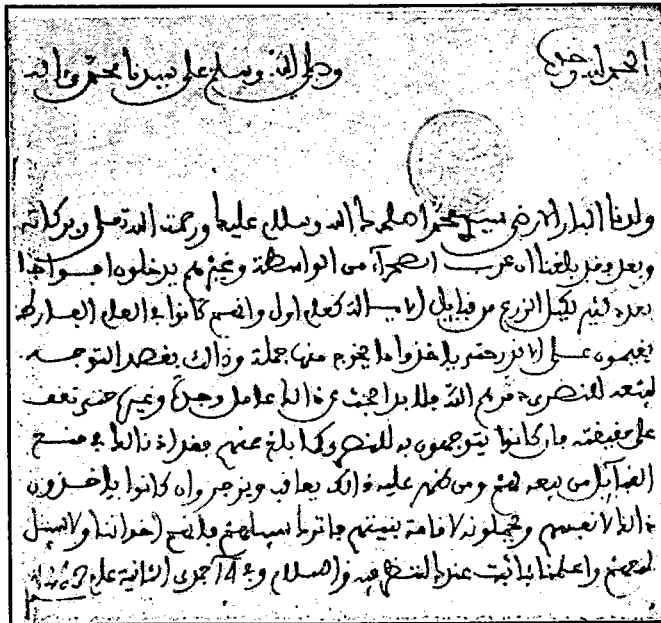 الحمد لله وحده
وصلى الله وسلم على سيدنا محمد وآله
ولدنا البار الارضى سيدي محمد اصلحك الله وسلام عليك ورحمة الله تعلى وبركاته
وبعد فقد بلغنا ان عرب الصحراء من الواسطة وغيرهم يدخلون افواجا
بعد لكيل الزرع من قبايل الايالة كعام اول وانهم كانوا في العام الفارط
يقيمون على حتى ياخذوا ما يخرج منها جملة وذلك بقصد التوجه
لبيعه للنصرى دمرهم الله فلا بد ابحث عن ذلك عاجلا وجدا وغيره حتى تقف
على حقيقته فان كانوا يتوجهون به للنصرى وكما بلغ عنهم ذلك في منع
القبايل من بيعه لهم ومن عليه فانك يعاقب ويزجر وان كانوا ياخذون
ذلك لانفسهم ويحملونه لاقامة بنيتهم فاترك سبيلهم فانهم اخواننا ولا سبيل
لمنعهم واعلمنا بما ثبت عندك والسلام في 14 جمدى الثانية عام